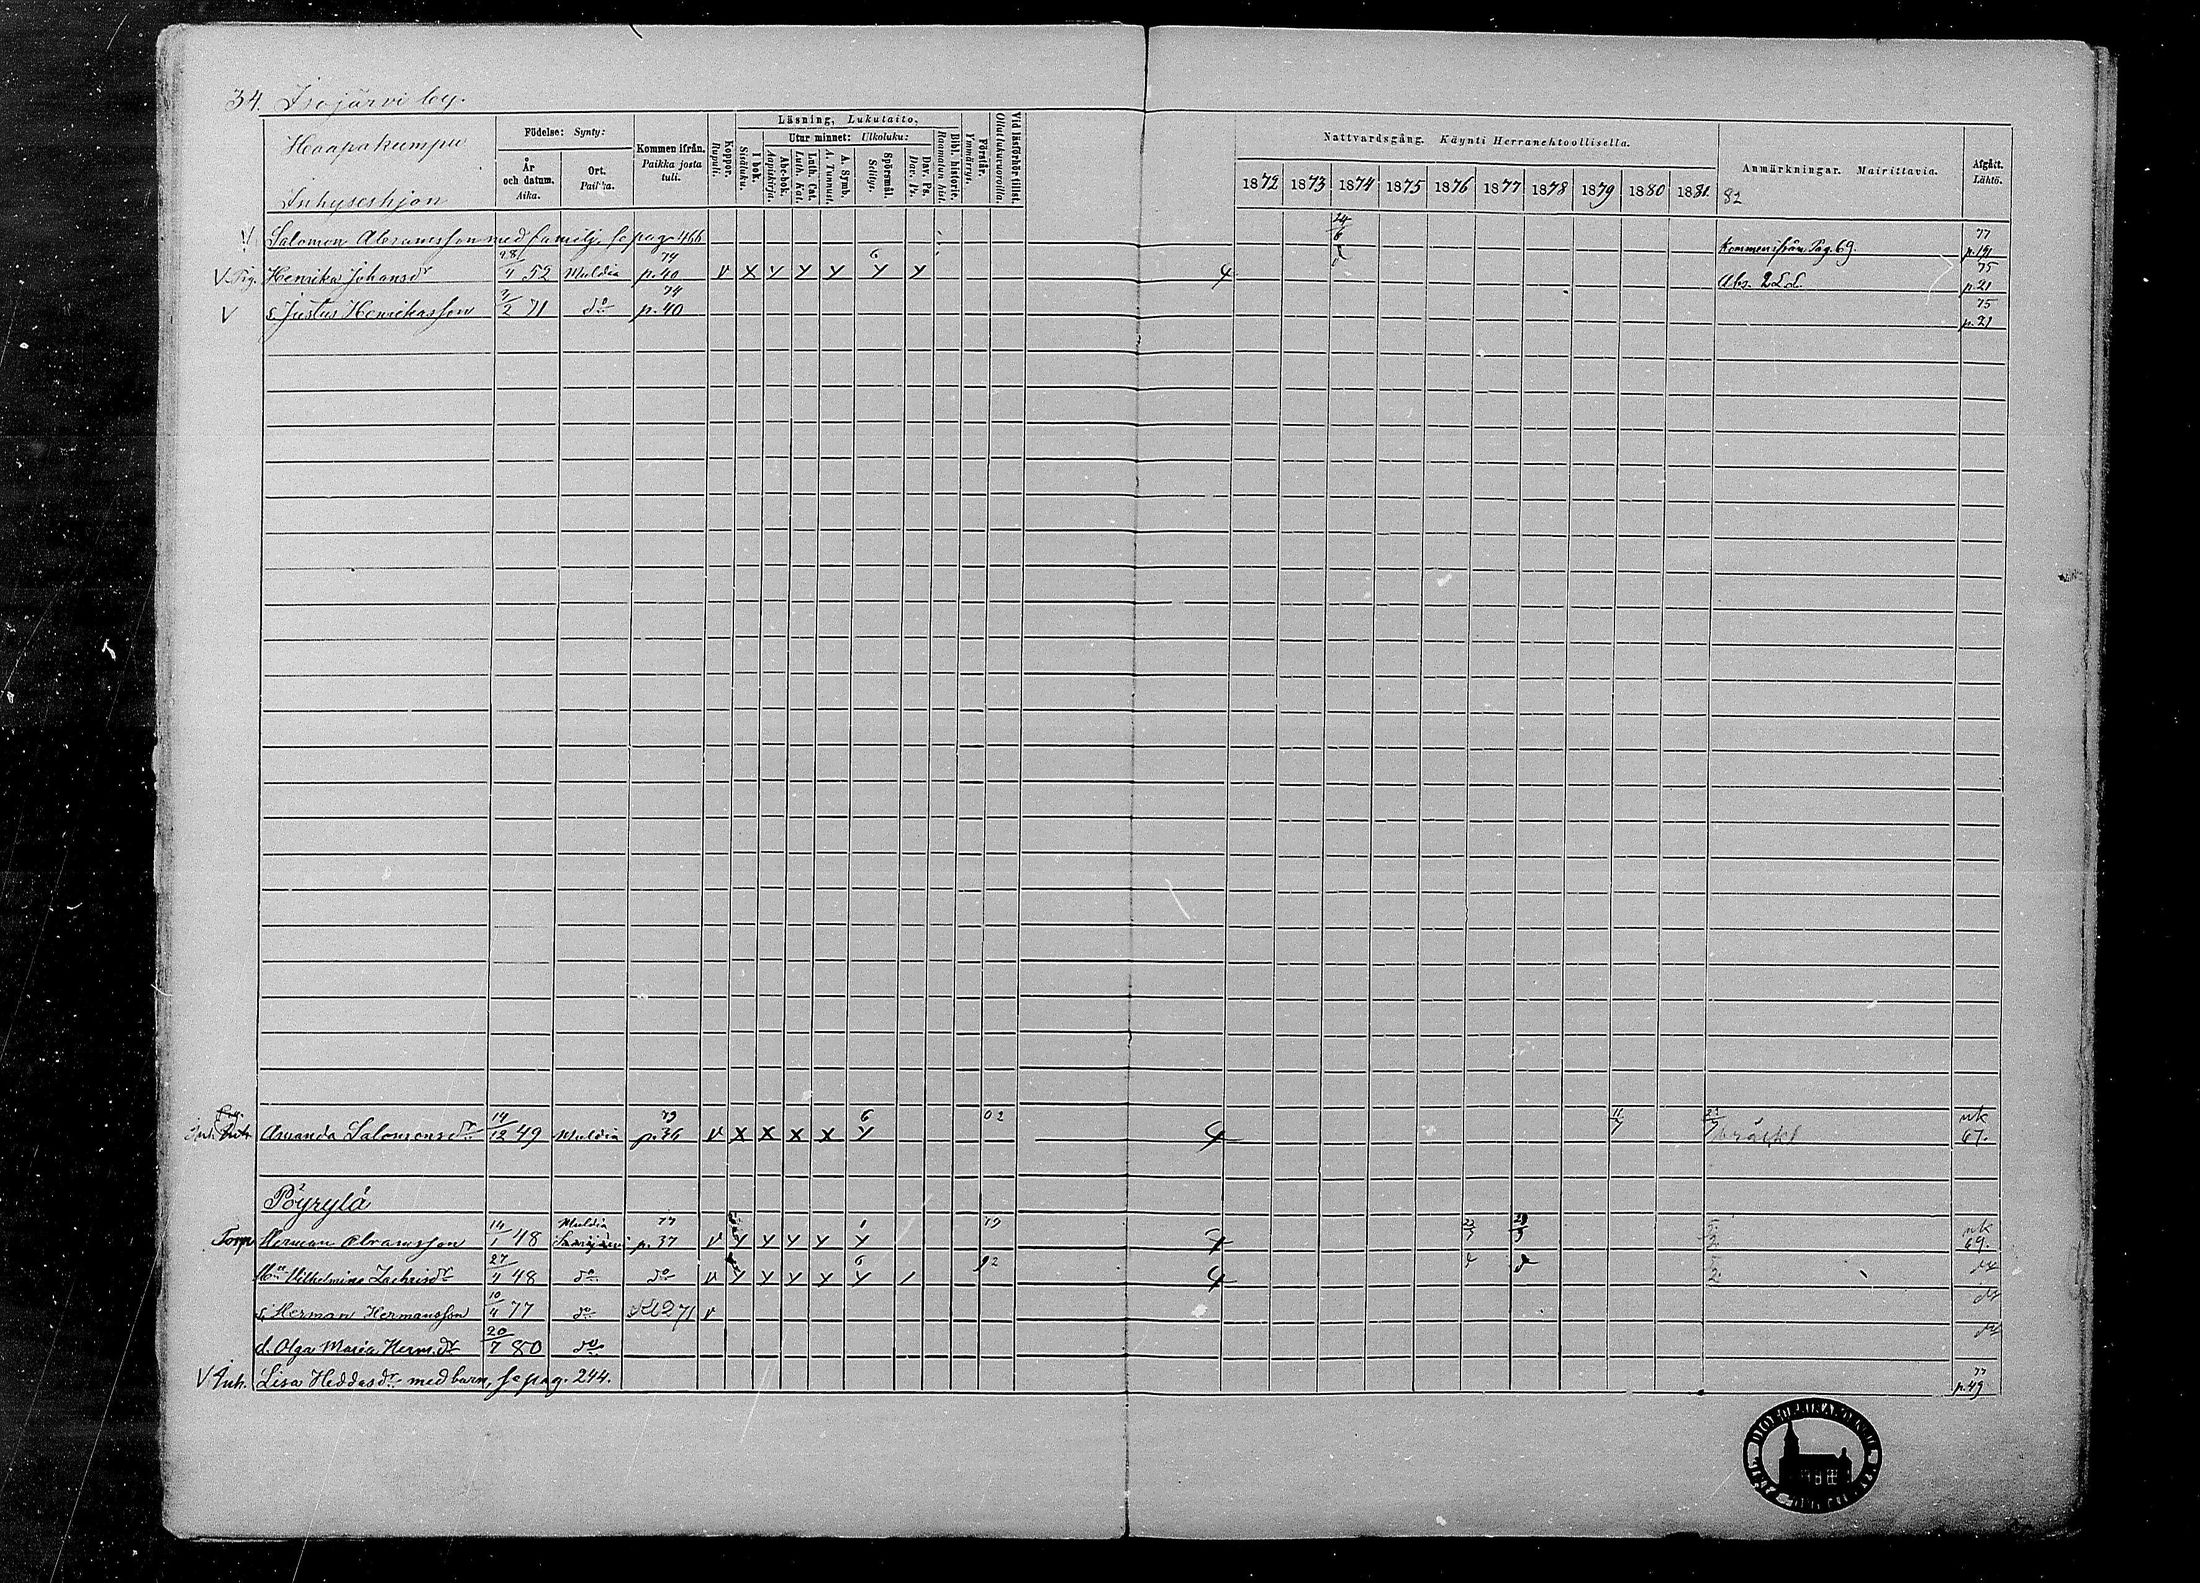 34. Isojärvi by.
Haapakumpu
Inhyseshjon
Födelse: Synty:
År och datum. Aika.
Ort. Paikka.
Kommen ifrån. Paikka josta tuli.
Koppor. Rupuli.
Läsning, Lukutaito,
I bok. Sisäluku.
Utur minnet: Ulkoluku:
Abc-bok. Aapiskirja.
Luth. Cat. Luth. Kat.
A. Symb. A. Tunnust.
Spörsmål. Selitys.
Dav. Ps. Dav. Ps.
Bibl. historie. Raamatun hist.
Förstår. Ymmärrys.
Vid läsförhör tillst. Ollut lukuvuoroilla.
Nattvardsgång. Käynti Herranehtoollisella.
1872 1873 1874 1875 1876 1877 1878 1879 1880 1881 82
Anmärkningar. Mairittavia.
Afgått. Lähtö.
V Salomon Abramsson med familj, se pag. 466 24/6 Kommen från Pag. 69. 77
V Pig. Henrika Johansdr 52 Muldia 74 p. 40 V X Y Y Y 6 Y Y 4 75 p. 21
V s. Justus Henrikasson 2 71 do 74 p. 40 75 p. 21
Inh. Amanda Salomonsdr 14/12 49 Muldia 79 p. 36 V X X X X 6 Y 02 4 11/7 nk 67.
Pöyrylä
Torp. Herman Abramsson 14/1 48 Muldia 77 p. 37 V Y Y Y Y Y 79 nk 69.
Vilhelmina Zachrisdr 27/4 48 do do V Y Y Y Y 6 Y 92 4
s. Herman Hermansson 10/4 77 do V
d. Olga Maria Herm.dr 20/7 80 do
V Inh. Lisa Heddasdr med barn, se pag. 244. 77 p. 49